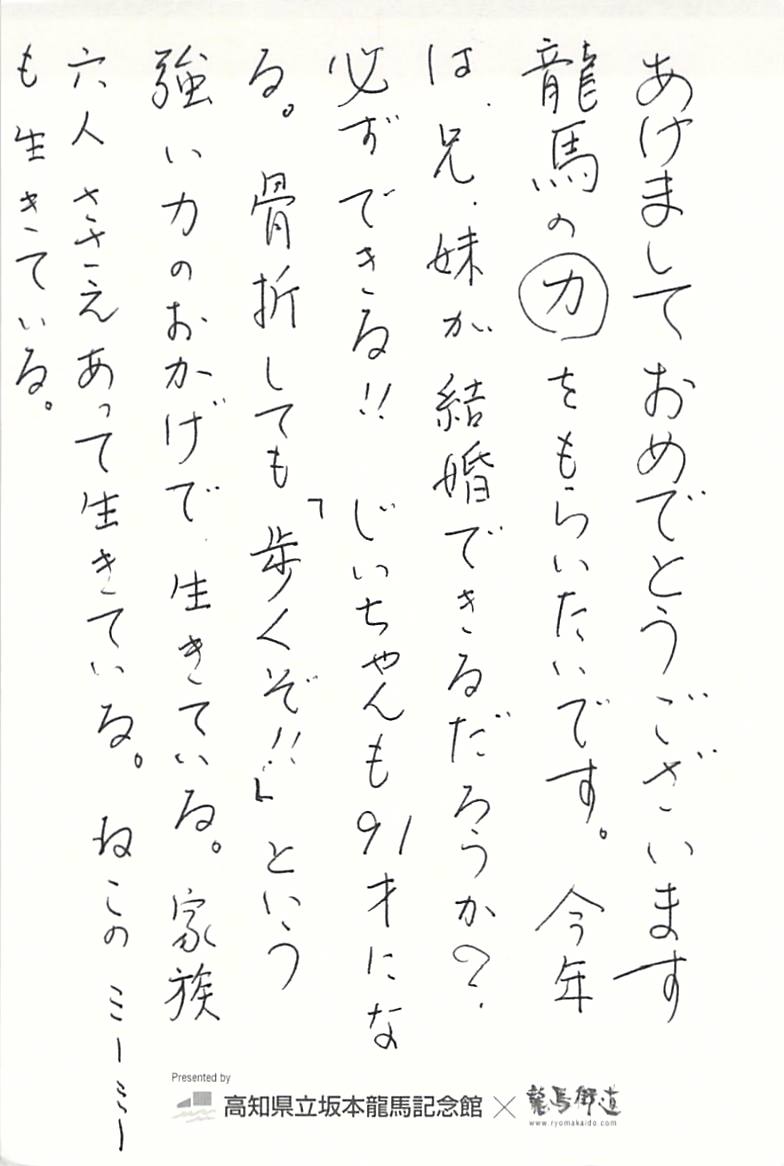 あけまして おめでとうございます
龍馬の力をもらいたいです。今年
は、兄、妹が結婚できるだろうか?
必ずできる!! じいちゃんも91才にな
る。骨折しても「歩くぞ!!」という
強い力のおかげで、生きている。家族
六人 ささえあって生きている。ねこの ミーミー
も生きている。
Presented by
高知県立坂本龍馬記念館 × 龍馬街道
www.ryomakaido.com